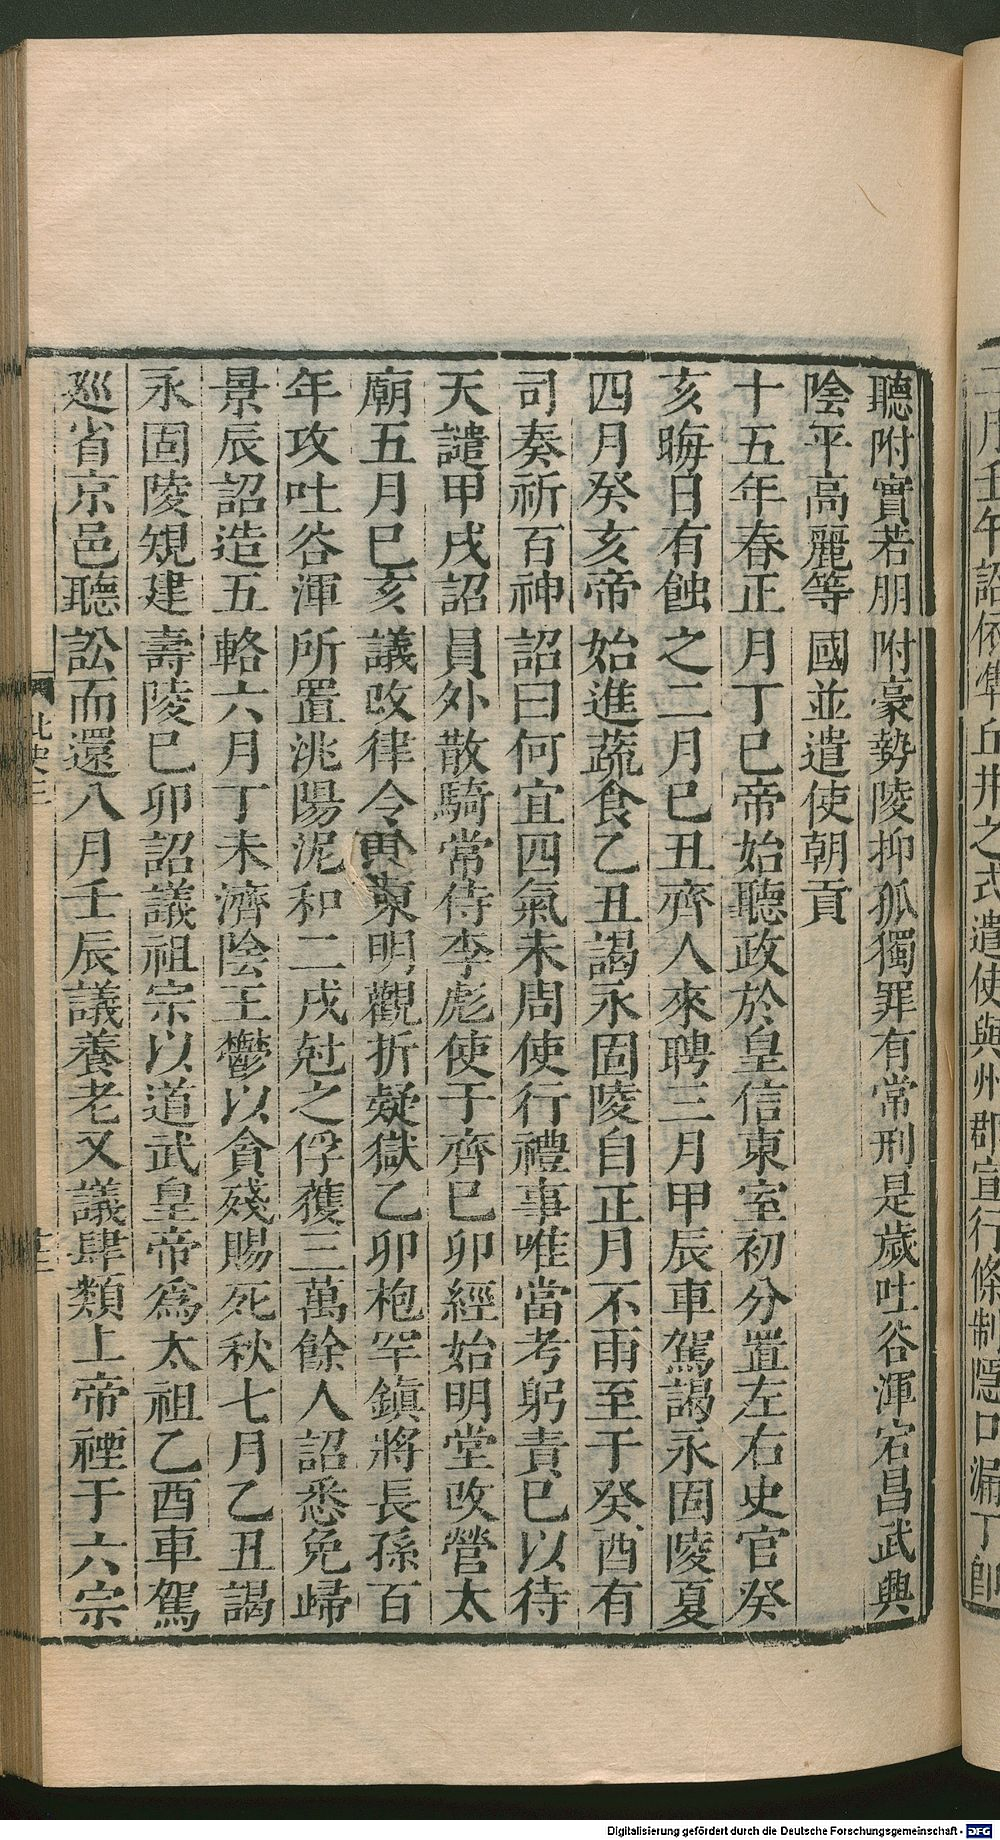 聽附實若朋附豪勢陵抑孤獨罪有常刑是歲吐谷渾宕昌武興
陰平高麗等國並遣使朝貢
十五年春正月丁巳帝始聽政於皇信東室初分置左右史官癸
亥晦日有蝕之二月巳丑齊人來聘三月甲辰車駕謁永固陵夏
四月癸亥帝始進蔬食乙丑謁永固陵自正月不雨至于癸酉有
司奏祈百神詔曰何宜四氣未周使行禮事唯當考躬責巳以待
天譴甲戌詔員外散騎常侍李彪使于齊巳卯經始明堂改營太
廟五月巳亥議改律令東明觀折疑獄乙卯枹罕鎮將長孫百
年攻吐谷渾所置洮陽泥和二戍尅之俘獲三萬餘人詔悉免歸
景辰詔造五輅六月丁未濟陰王鬱以貪殘賜死秋七月乙丑謁
永固陵規建壽陵巳卯詔議祖宗以道武皇帝爲太祖乙酉車駕
廵省京邑聽訟而還八月壬辰議養老又議肆類上帝禋于六宗
北史三
二月壬午詔依準丘井之式遣使與州郡宣行條制隱口漏丁卽
Digitalisierung gefördert durch die Deutsche Forschungsgemeinschaft - DFG